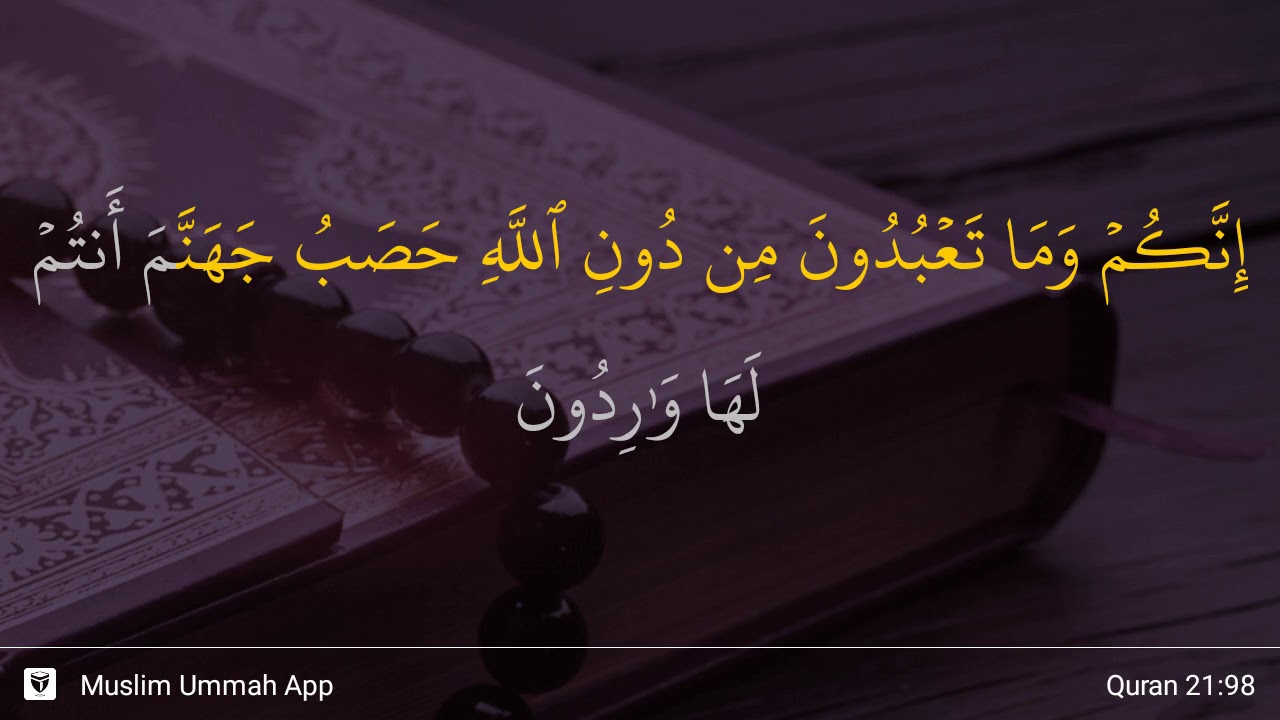 إِنَّكُمۡ وَمَا تَعۡبُدُونَ مِن دُونِ ٱللَّهِ حَصَبُ جَهَنَّمَ أَنتُمۡ
لَهَا وَٰرِدُونَ
Muslim Ummah App
Quran 21:98